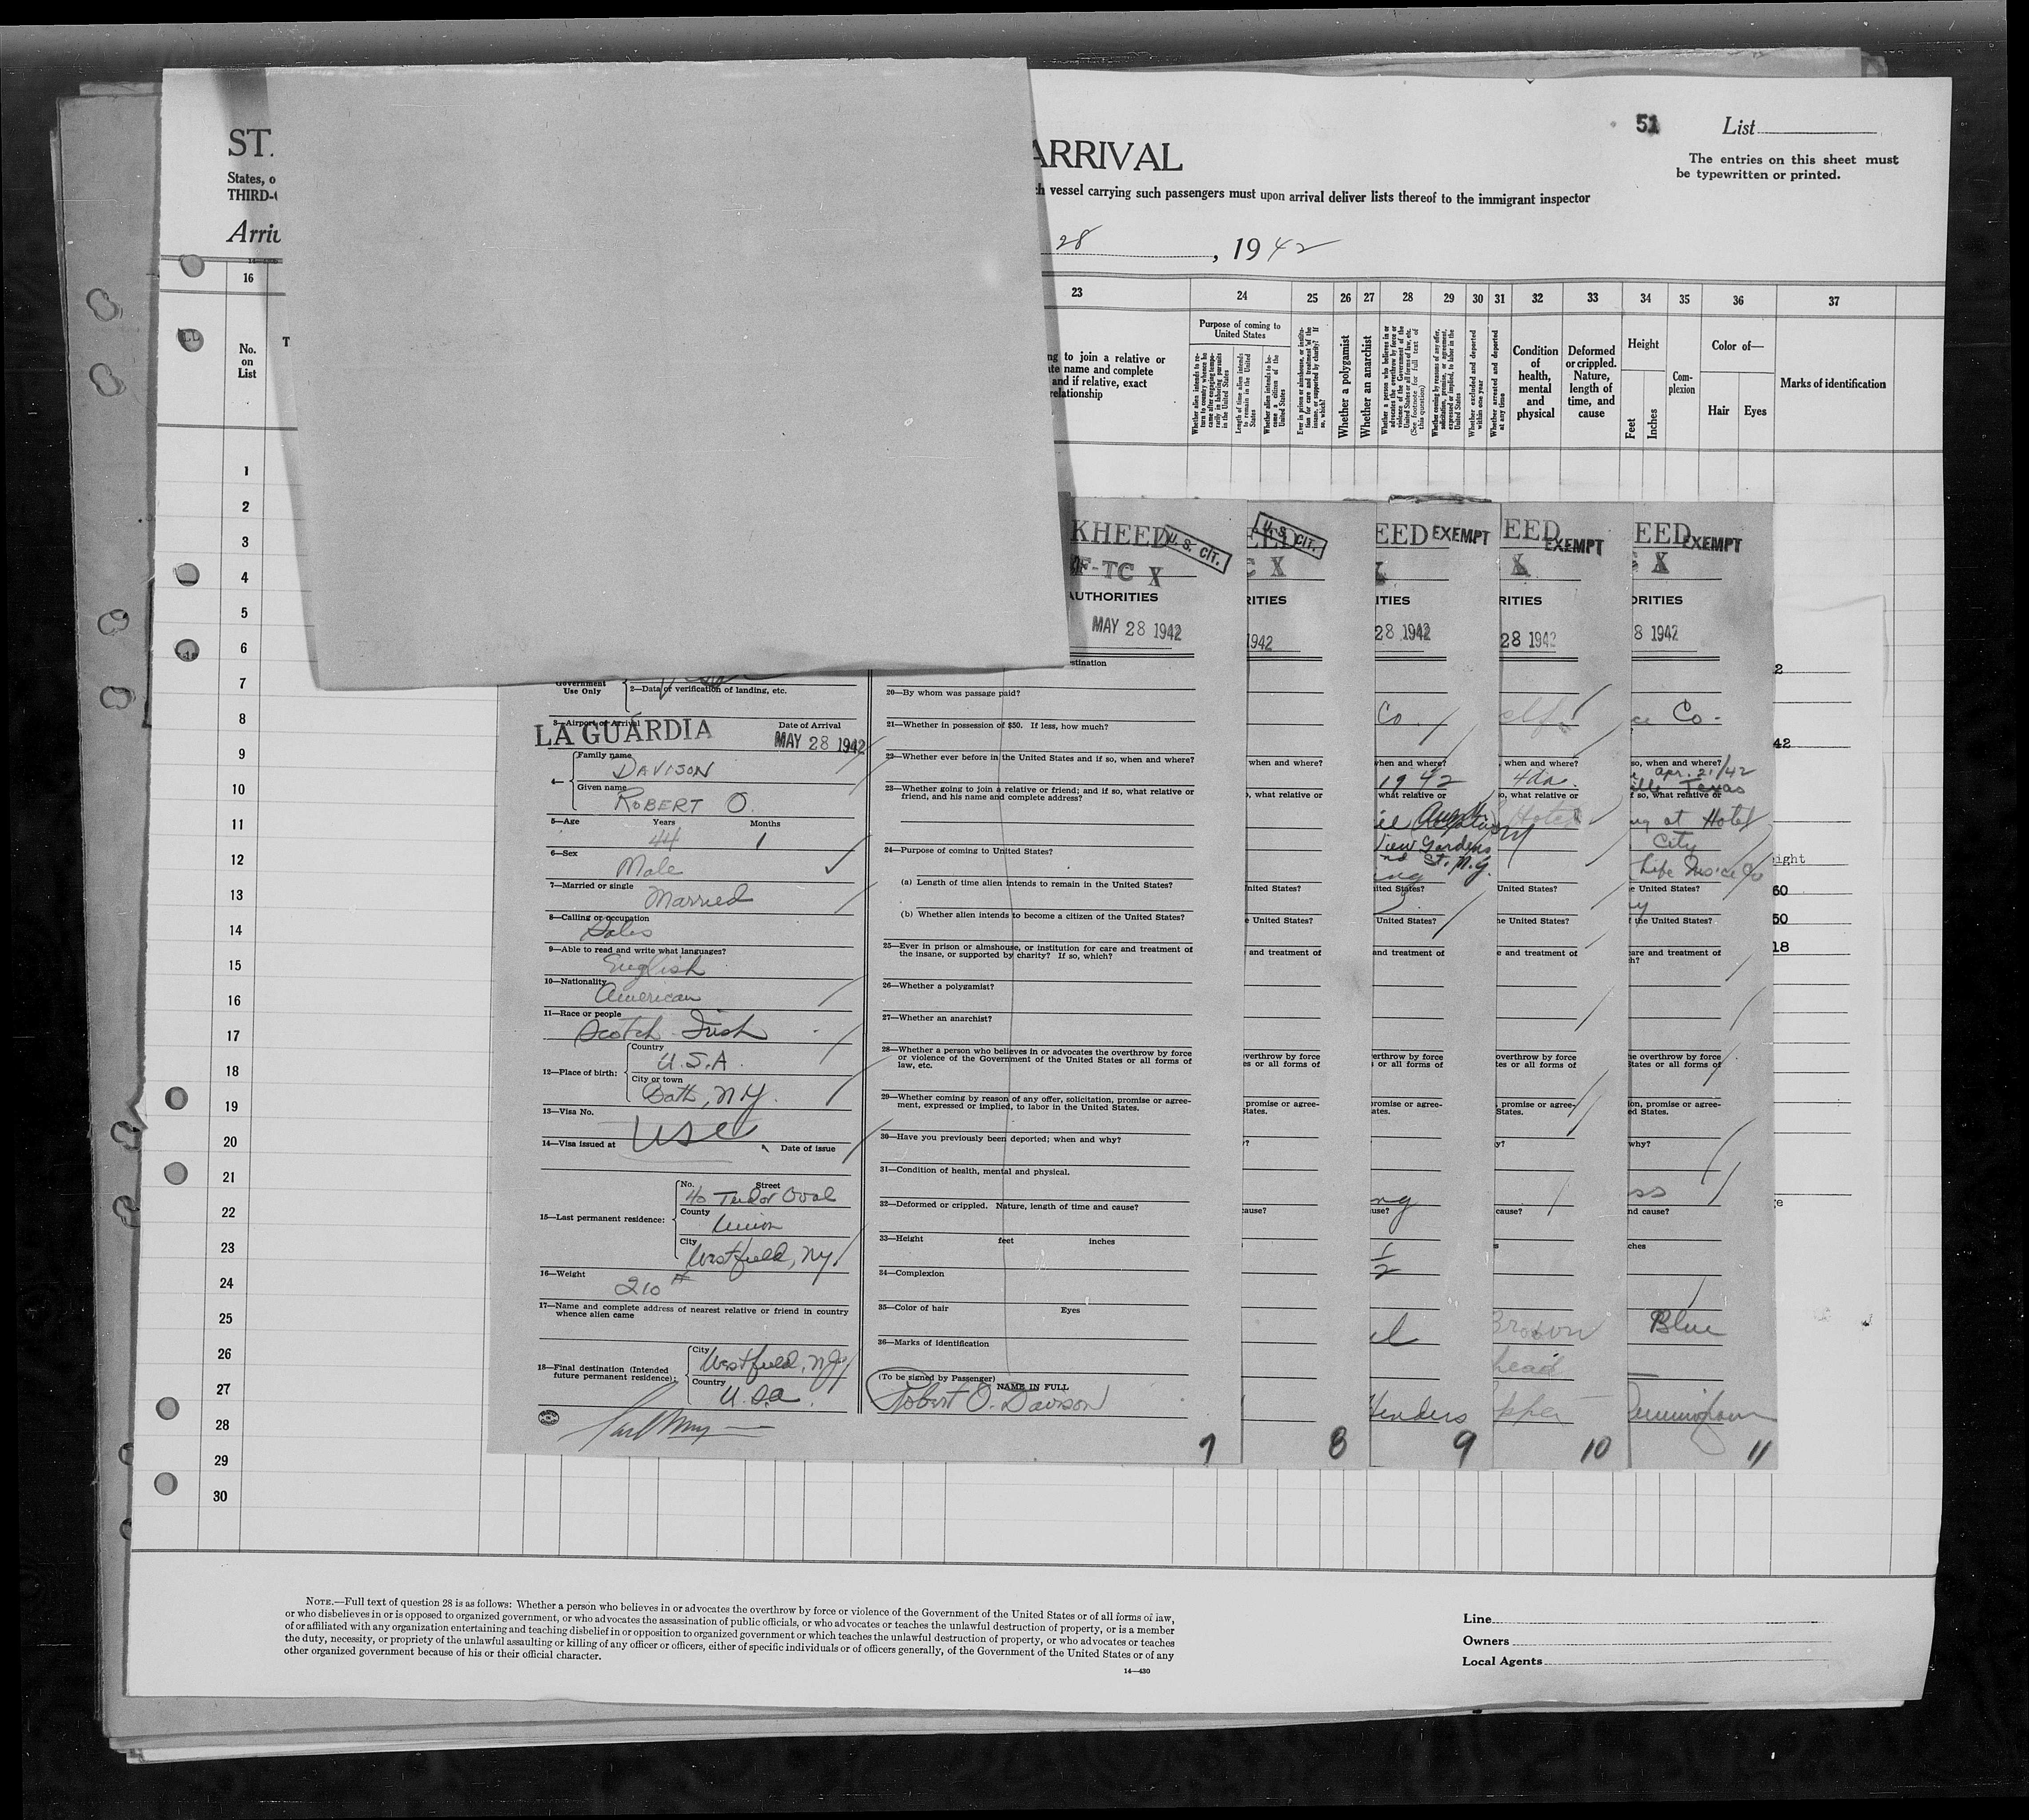 51
List
ST.
ARRIVAL
The entries on this sheet must
be typewritten or printed.
States, o
THIRD-
h vessel carrying such passengers must upon arrival deliver lists thereof to the immigrant inspector
Arriv
28, 1942
16
23
24
25
26
27
28
29
30
31
32
33
34
35
36
37
No.
on
List
T
g to join a relative or
te name and complete
and if relative, exact
relationship
Purpose of coming to
United States
Whether a polygamist
Whether an anarchist
Condition
of
health,
mental
and
physical
Deformed
or crippled.
Nature,
length of
time, and
cause
Height
Feet
Inches
Com-
plexion
Color of—
Hair
Eyes
Marks of identification
1
2
3
4
5
6
7
8
9
10
11
12
13
14
15
16
17
18
19
20
21
22
23
24
25
26
27
28
29
30
Government
Use Only
2—Data of verification of landing, etc.
3—Airport of Arrival
Date of Arrival
LA GUARDIA
MAY 28 1942
4—
Family name
DAVISON
Given name
ROBERT O.
5—Age
Years
Months
44
1
6—Sex
Male
7—Married or single
Married
8—Calling or occupation
Sales
9—Able to read and write what languages?
English
10—Nationality
American
11—Race or people
Scotch-Irish
12—Place of birth:
Country
U.S.A.
City or town
Bath, N.Y.
13—Visa No.
USC
14—Visa issued at
Date of issue
15—Last permanent residence:
No.
Street
40 Tudor Oval
County
Union
City
Westfield, NJ
16—Weight
210 #
17—Name and complete address of nearest relative or friend in country
whence alien came
18—Final destination (Intended
future permanent residence):
City
Westfield, NJ
Country
U.S.A.
KHEED
U. S. CIT.
F-TC X
AUTHORITIES
MAY 28 1942
estination
20—By whom was passage paid?
21—Whether in possession of $50. If less, how much?
22—Whether ever before in the United States and if so, when and where?
23—Whether going to join a relative or friend; and if so, what relative or
friend, and his name and complete address?
24—Purpose of coming to United States?
(a) Length of time alien intends to remain in the United States?
(b) Whether alien intends to become a citizen of the United States?
25—Ever in prison or almshouse, or institution for care and treatment of
the insane, or supported by charity? If so, which?
26—Whether a polygamist?
27—Whether an anarchist?
28—Whether a person who believes in or advocates the overthrow by force
or violence of the Government of the United States or all forms of
law, etc.
29—Whether coming by reason of any offer, solicitation, promise or agree-
ment, expressed or implied, to labor in the United States.
30—Have you previously been deported; when and why?
31—Condition of health, mental and physical.
32—Deformed or crippled. Nature, length of time and cause?
33—Height
feet
inches
34—Complexion
35—Color of hair
Eyes
36—Marks of identification
(To be signed by Passenger)
NAME IN FULL
Robert O. Davison
7
EED
U. S. CIT.
C X
RITIES
1942
when and where?
, what relative or
nited States?
e United States?
and treatment of
verthrow by force
es or all forms of
promise or agree-
States.
?
ause?
8
EED EXEMPT
X
ITIES
28 1942
Co.
hen and where?
1942
what relative or
View Gardens
St. N.Y.
ited States?
United States?
and treatment of
erthrow by force
or all forms of
romise or agree-
ates.
ng
use?
1/2
9
EED EXEMPT
X
RITIES
28 1942
self
when and where?
o, what relative or
Hotel
United States?
he United States?
e and treatment of
overthrow by force
tes or all forms of
, promise or agree-
States.
y?
cause?
s
Brown
head
10
EED EXEMPT
C X
ORITIES
8 1942
ce Co.
so, when and where?
Apr. 21/42
ille Texas
f so, what relative or
ng at Hotel
City
Life Ins ce Co
e United States?
f the United States?
care and treatment of
ch?
he overthrow by force
States or all forms of
ion, promise or agree-
ed States.
why?
ss
nd cause?
ches
Blue
11
2
42
ight
60
50
18
e
NOTE.—Full text of question 28 is as follows: Whether a person who believes in or advocates the overthrow by force or violence of the Government of the United States or of all forms of law,
or who disbelieves in or is opposed to organized government, or who advocates the assassination of public officials, or who advocates or teaches the unlawful destruction of property, or is a member
of or affiliated with any organization entertaining and teaching disbelief in or opposition to organized government or which teaches the unlawful destruction of property, or who advocates or teaches
the duty, necessity, or propriety of the unlawful assaulting or killing of any officer or officers, either of specific individuals or of officers generally, of the Government of the United States or of any
other organized government because of his or their official character.
14—430
Line
Owners
Local Agents